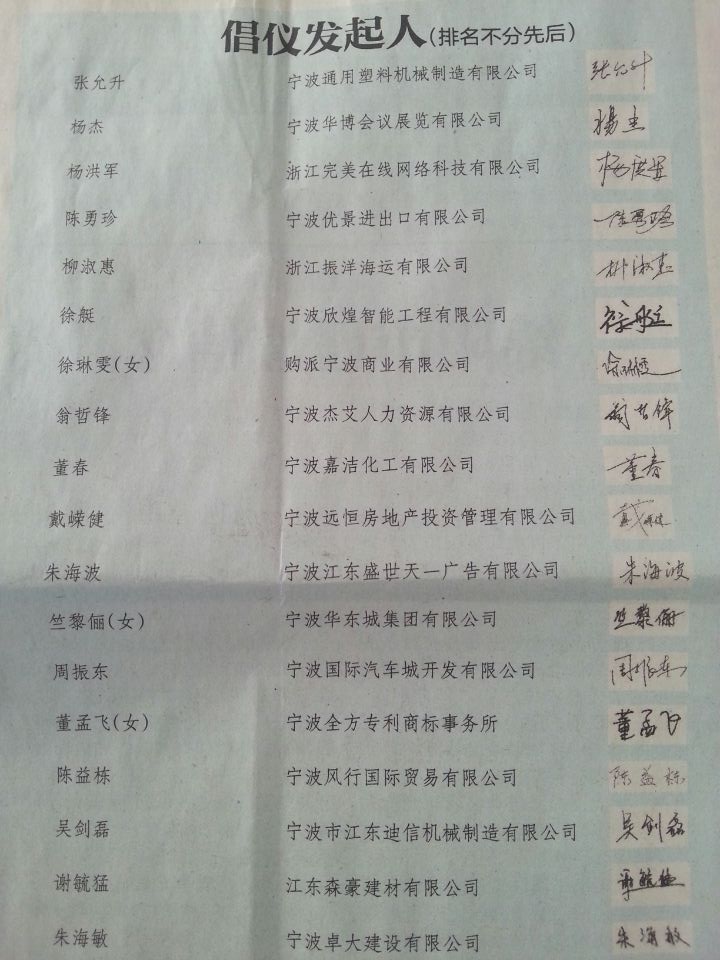 倡仪发起人(排名不分先后)
张允升 宁波通用塑料机械制造有限公司 张允升
杨杰 宁波华博会议展览有限公司 杨杰
杨洪军 浙江完美在线网络科技有限公司 杨洪军
陈勇珍 宁波优景进出口有限公司 陈勇珍
柳淑惠 浙江振洋海运有限公司 柳淑惠
徐艇 宁波欣煌智能工程有限公司 徐艇
徐琳雯(女) 购派宁波商业有限公司
翁哲锋 宁波杰艾人力资源有限公司 翁哲锋
董春 宁波嘉洁化工有限公司 董春
戴嵘健 宁波远恒房地产投资管理有限公司 戴嵘健
朱海波 宁波江东盛世天一广告有限公司 朱海波
竺黎俪(女) 宁波华东城集团有限公司 竺黎俪
周振东 宁波国际汽车城开发有限公司 周振东
董孟飞(女) 宁波全方专利商标事务所 董孟飞
陈益栋 宁波风行国际贸易有限公司 陈益栋
吴剑磊 宁波市江东迪信机械制造有限公司 吴剑磊
谢毓猛 江东森豪建材有限公司 谢毓猛
朱海敏 宁波卓大建设有限公司 朱海敏